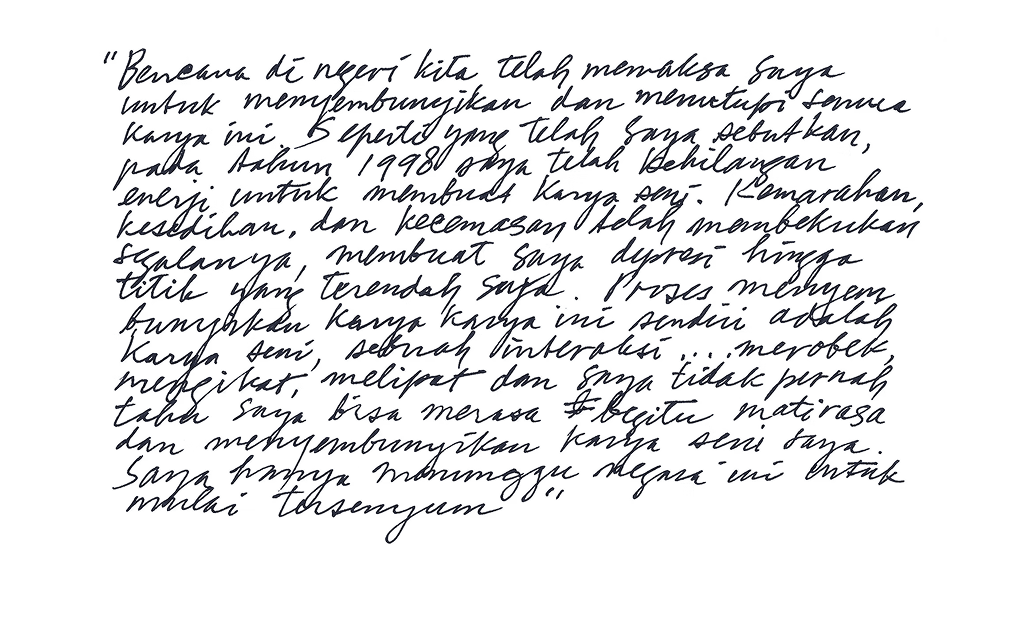 "Bencana di negeri kita telah memaksa saya
untuk menyembunyikan dan menutupi semua
karya ini. Seperti yang telah saya sebutkan,
pada tahun 1998 saya telah kehilangan
energi untuk membuat karya seni. Kemarahan,
kesedihan, dan kecemasan telah membekukan
segalanya, membuat saya depresi hingga
titik yang terendah saya. Proses menyem
bunyikan karya karya ini sendiri adalah
karya seni, sebuah interaksi .... merobek,
mengikat, melipat dan saya tidak pernah
tahu saya bisa merasa begitu matirasa
dan menyembunyikan karya seni saya.
Saya hanya menunggu negara ini untuk
mulai tersenyum"